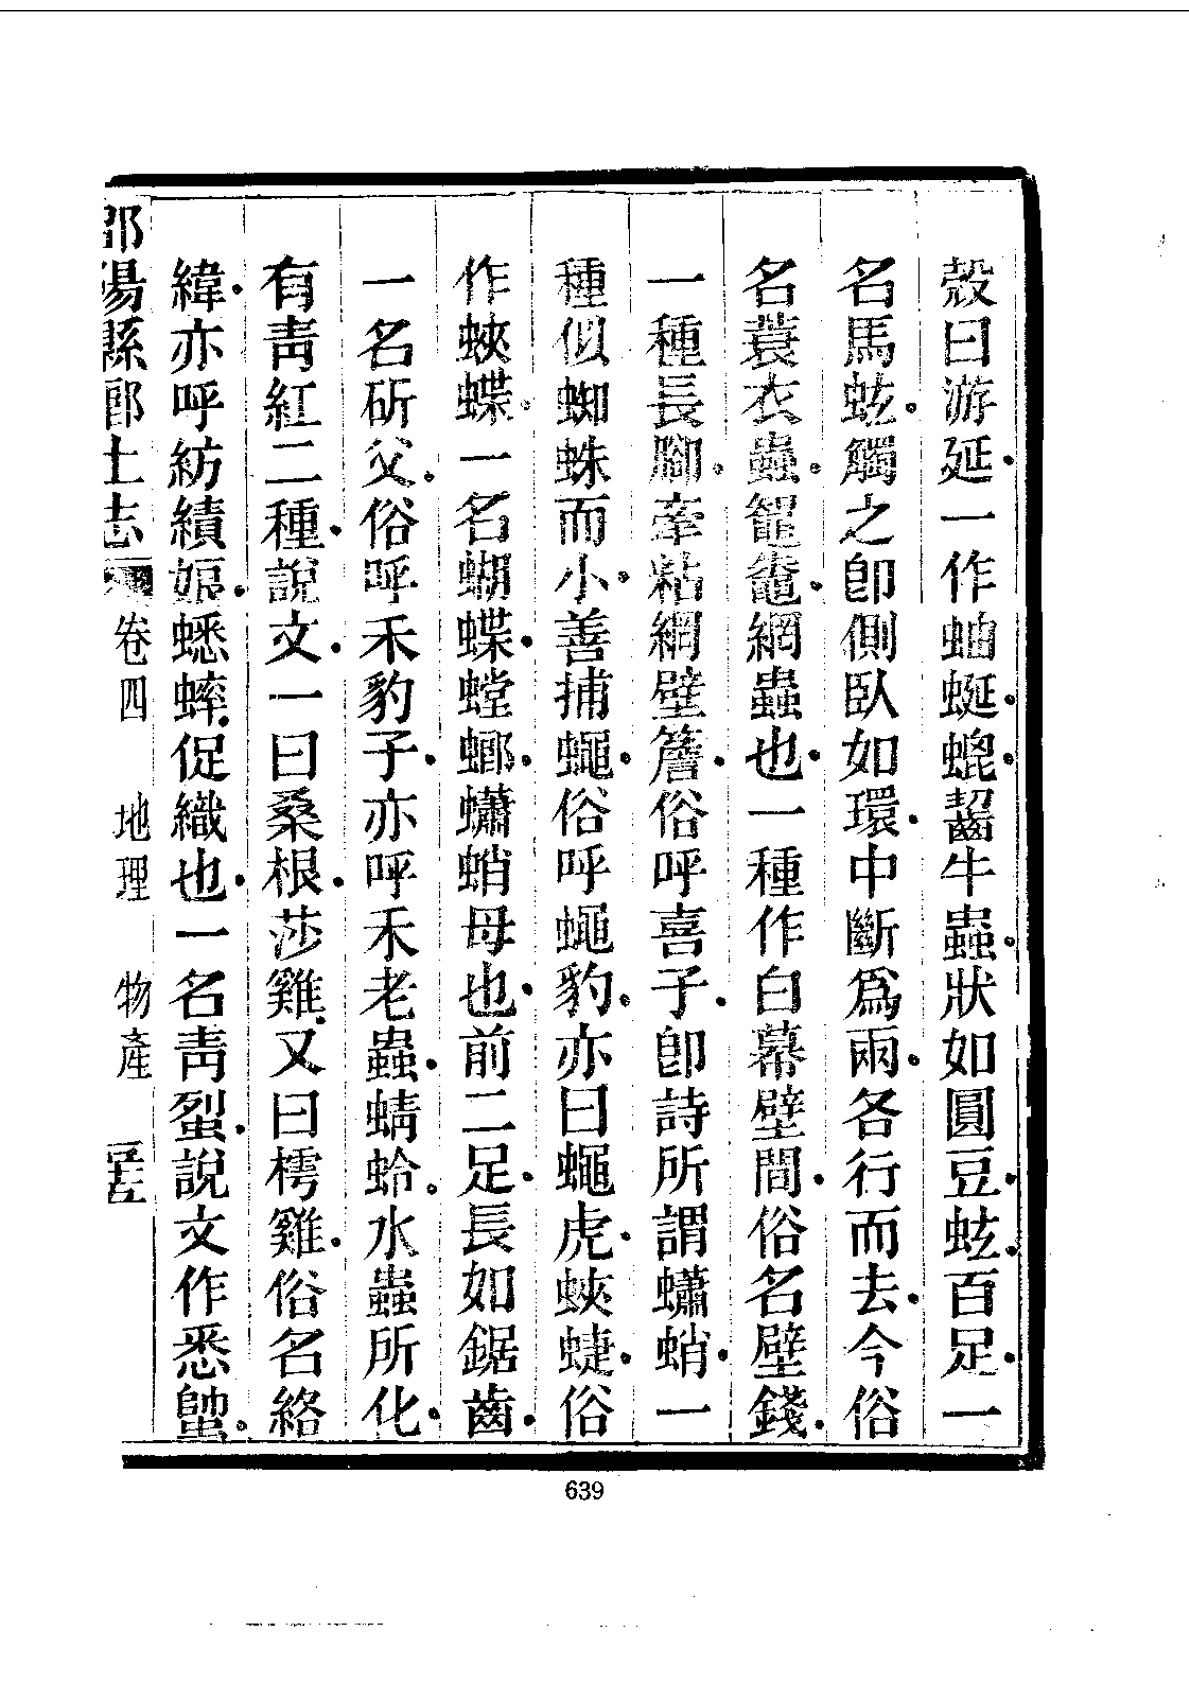 殼曰游延一作蚰蜒蜫齧牛蟲狀如圓豆蚿百足一
名馬蚿觸之卽側臥如環中斷爲兩各行而去今俗
名蓑衣蟲鼅鼄網蟲也一種作白幕壁間俗名壁錢
一種長腳牽粘網壁簷俗呼喜子卽詩所謂蠨蛸一
種似蜘蛛而小善捕蠅俗呼蠅豹亦曰蠅虎蛺蜨俗
作蛺蝶一名蝴蝶螳螂蠨蛸母也前二足長如鋸齒
一名斫父俗呼禾豹子亦呼禾老蟲蜻蛉水蟲所化
有靑紅二種說文一曰桑根莎雞又曰樗雞俗名絡
緯亦呼紡績娘蟋蟀促織也一名靑蛚說文作悉𧍓
邵陽縣鄉土志 卷四 地理 物產
639